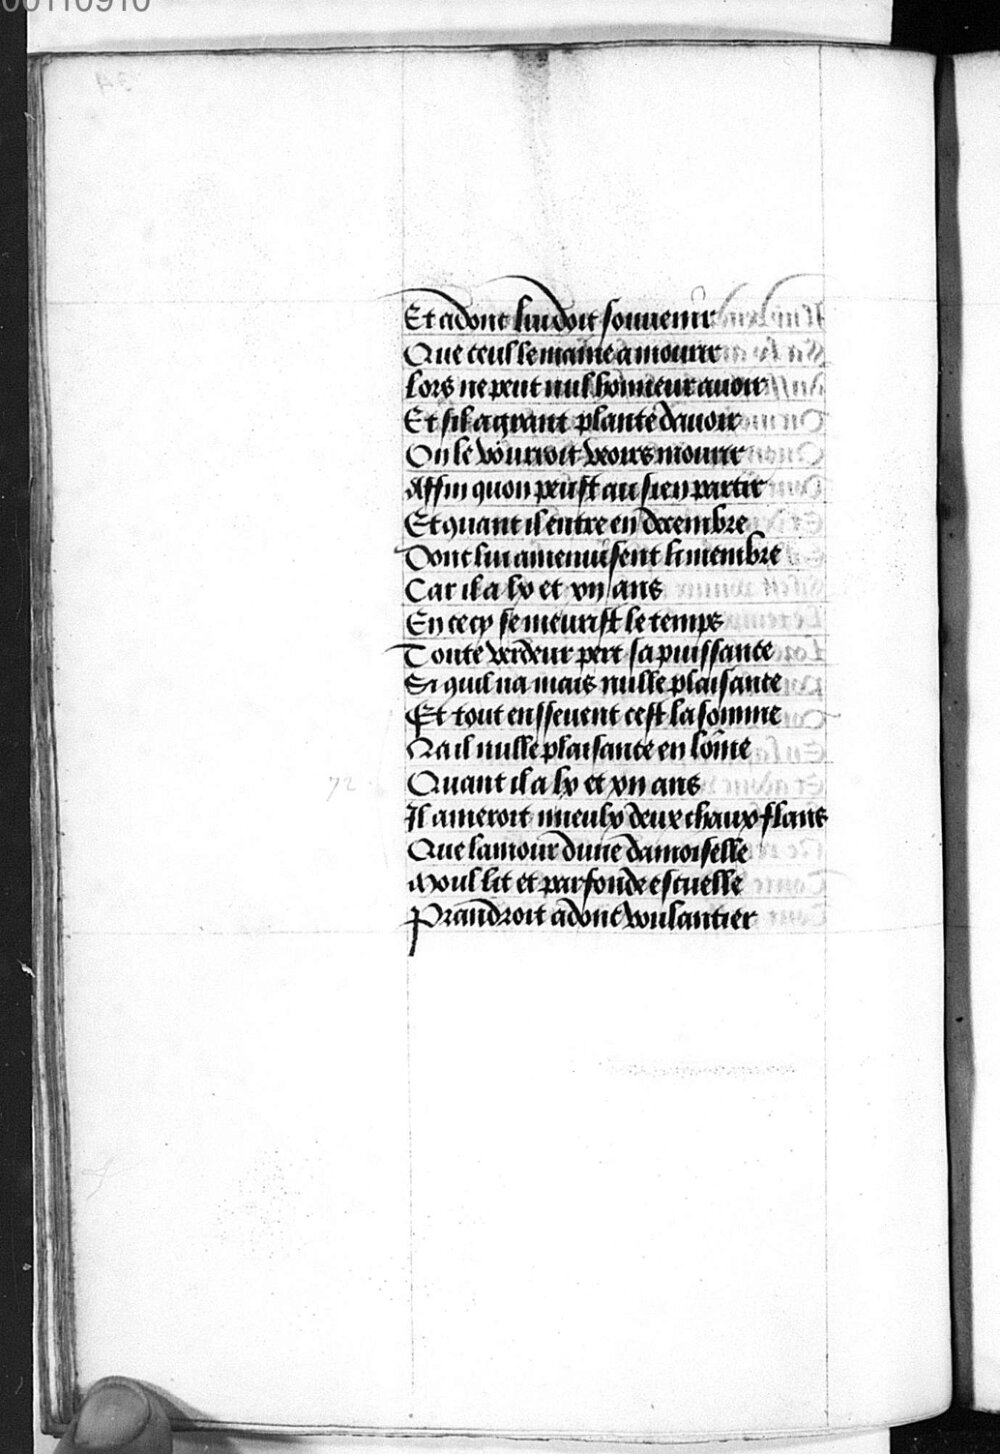 00110910
Et adont lui doit souuenir
Que ceulle maine a mourir
Lors ne peut nul honneur auoir
Et sil a grant plante dauoir
On le vourroit veoirs mourir
Affin quon peust au sien partir
Et quant il entre en decembre
Dont lui amenuisent li membre
Car il a lx et xii ans
En cecy se meurist le temps
Toute verdeur pert sa puissance
Si quil na mais nulle plaisance
Et tout enssement cest la somme
Na il nulle plaisance en lõme
Quant il a lx et xii ans
72
Il ameroit mieulx deux chaux flans
Que lamour dune damoiselle
Moul lit et parfonde escuelle
Prandroit adont voulantier